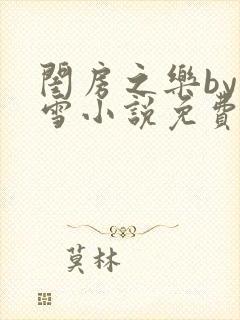 閨房之樂by
雪小說免費
莫林